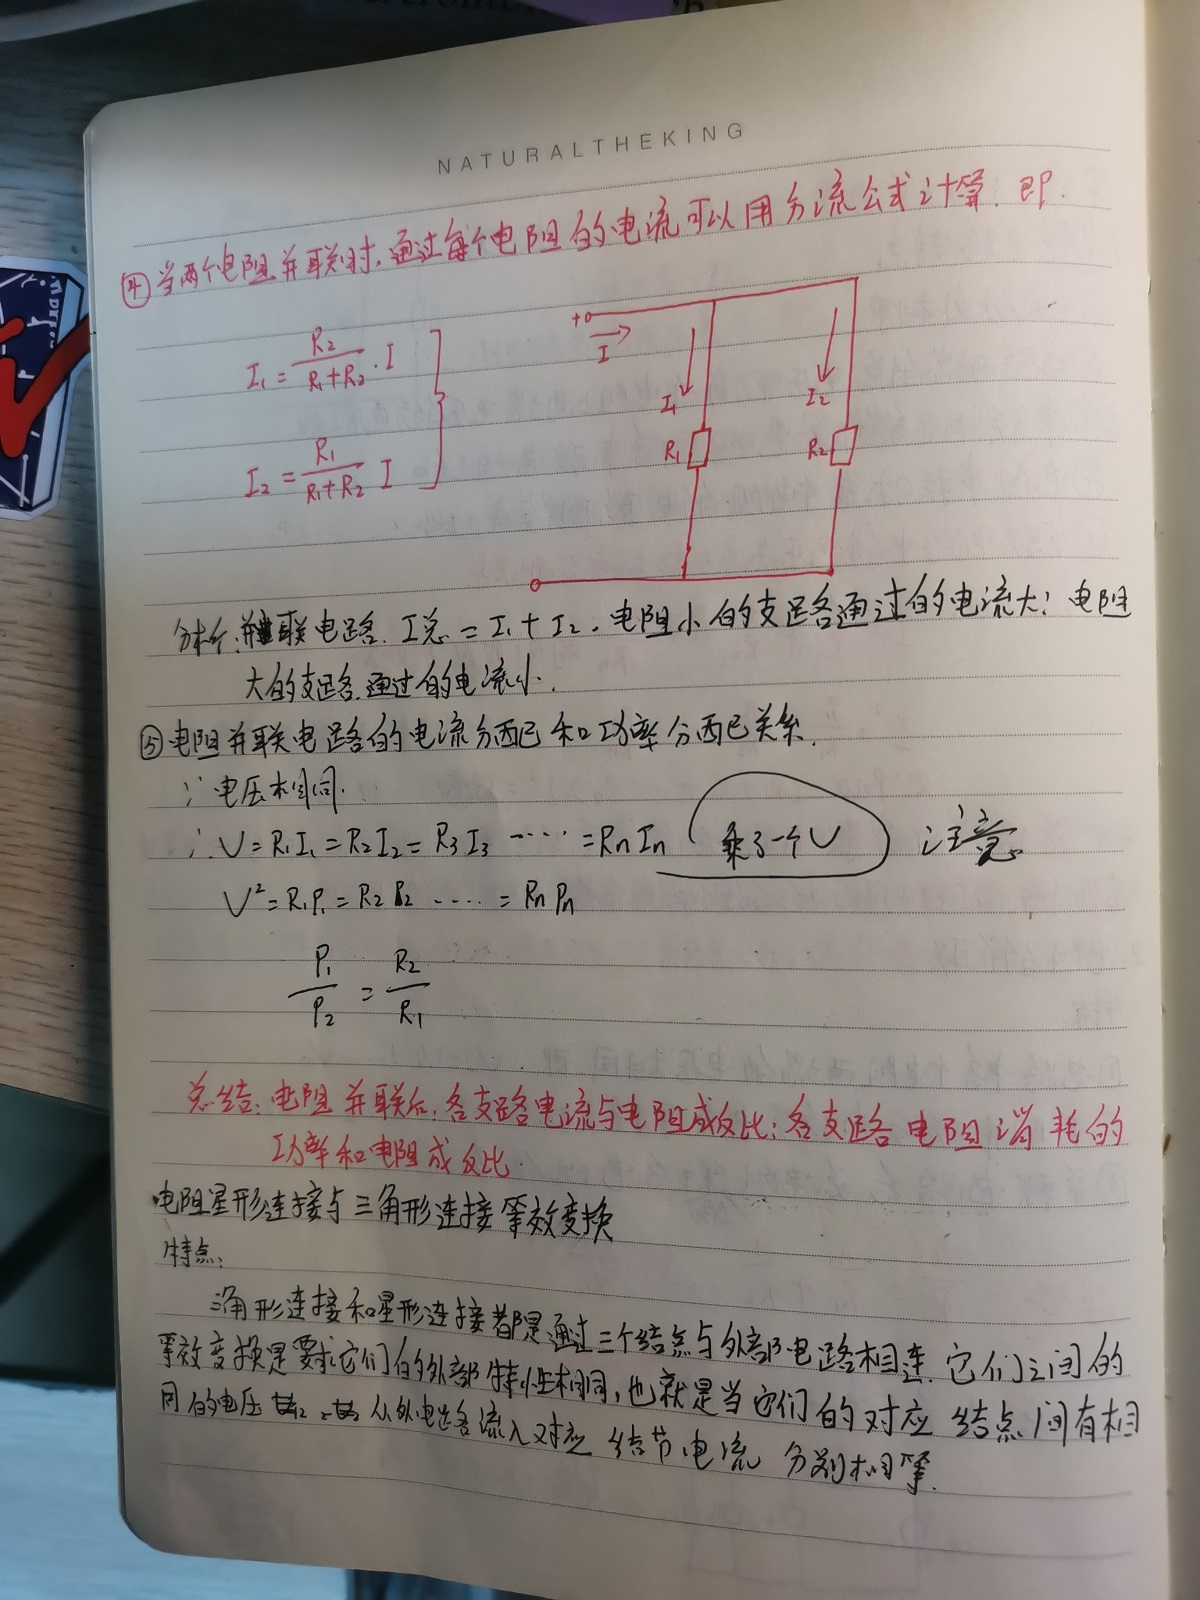 NATURALTHEKING
④当两个电阻并联时,通过每个电阻的电流可以用分流公式计算.即.
I₁ = R₂/(R₁+R₂) · I
I₂ = R₁/(R₁+R₂) I
+
I
I₁
I₂
R₁
R₂
分析:并联电路.I总=I₁+I₂.电阻小的支路通过的电流大;电阻
大的支路.通过的电流小.
⑤电阻并联电路的电流分配和功率分配关系.
∵电压相同.
∴U=R₁I₁=R₂I₂=R₃I₃ ····· =RnIn 乘了一个U 注意
U²=R₁P₁=R₂P₂ ····· =RnPn
P₁/P₂ = R₂/R₁
总结:电阻并联后,各支路电流与电阻成反比;各支路电阻消耗的
功率和电阻成反比.
电阻星形连接与三角形连接等效变换
特点:
三角形连接和星形连接都是通过三个结点与外部电路相连.它们之间的
等效变换是要求它们的外部特性相同,也就是当它们的对应结点间有相
同的电压 从外电路流入对应结节电流 分别相等.